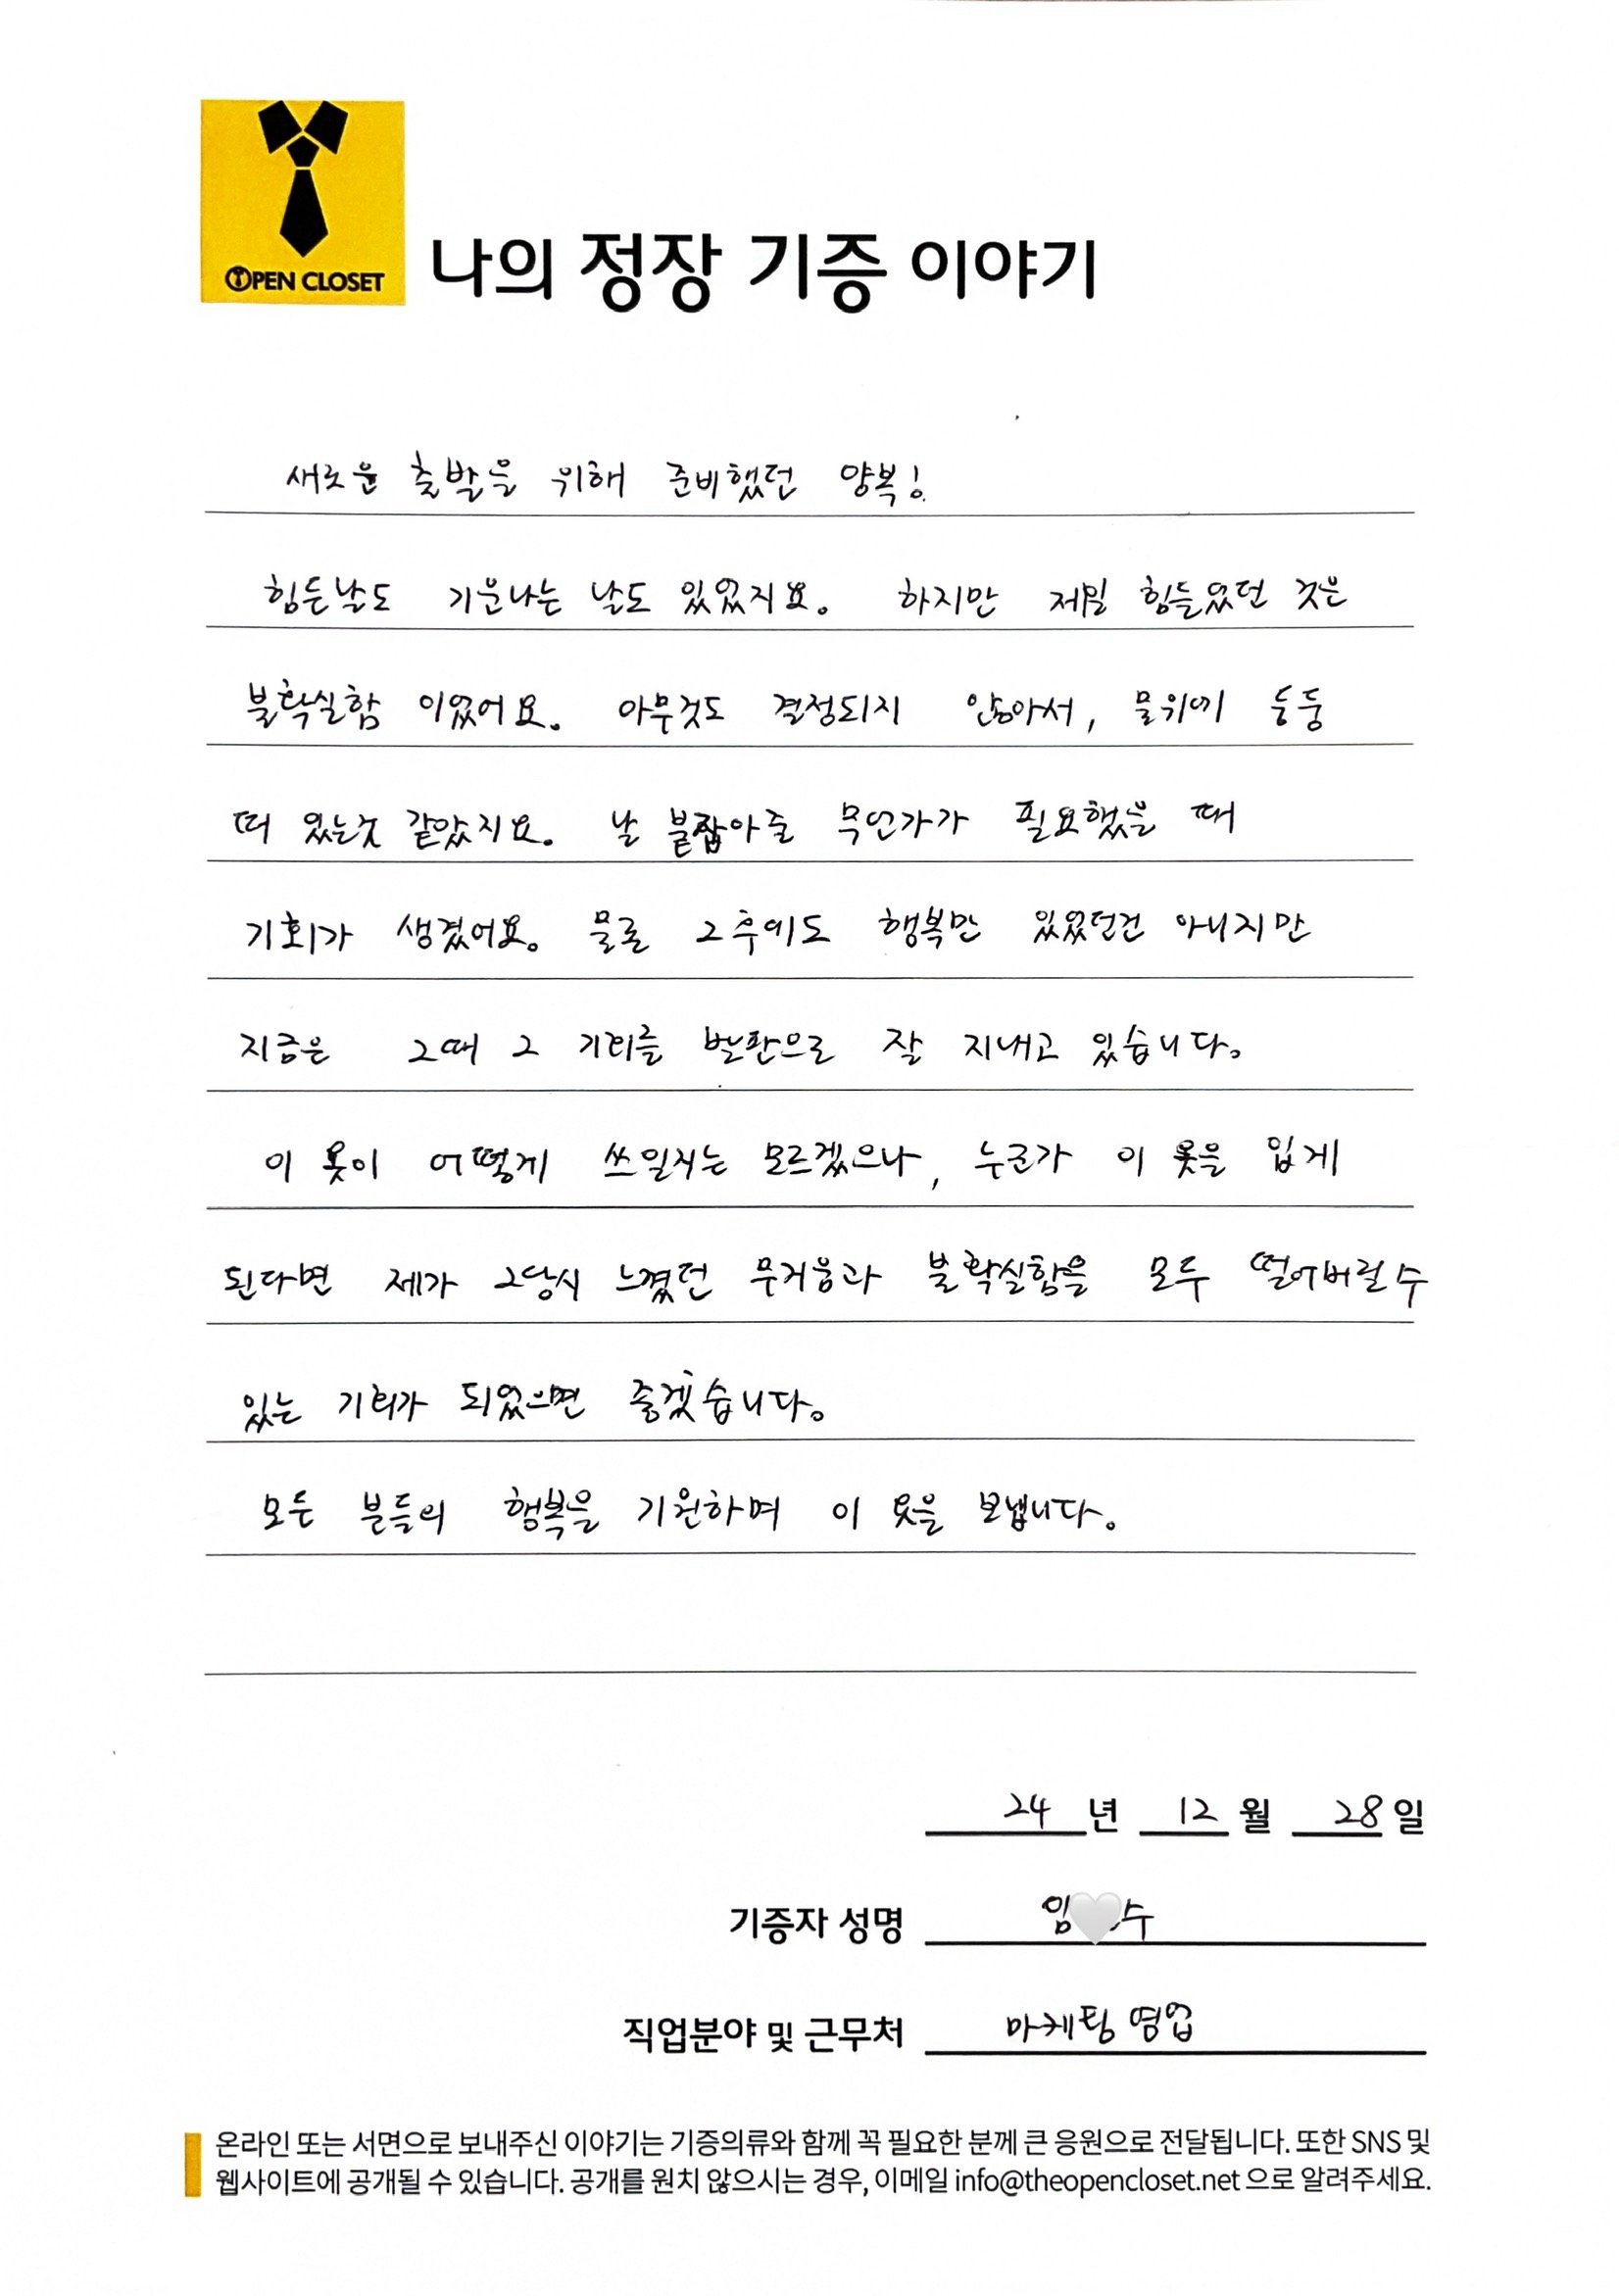 OPEN CLOSET
나의 정장 기증 이야기
새로운 출발을 위해 준비했던 양복!
힘든날도 기운나는 날도 있었지요. 하지만 제일 힘들었던 것은
불확실함 이었어요. 아무것도 결정되지 않아서, 물위에 둥둥
떠 있는것 같았지요. 날 붙잡아줄 무언가가 필요했을 때
기회가 생겼어요. 물론 그후에도 행복만 있었던건 아니지만
지금은 그때 그 기회를 발판으로 잘 지내고 있습니다.
이 옷이 어떻게 쓰일지는 모르겠으나, 누군가 이 옷을 입게
된다면 제가 그당시 느꼈던 무거움과 불확실함을 모두 떨어버릴 수
있는 기회가 되었으면 좋겠습니다.
모든 분들의 행복을 기원하며 이 옷을 보냅니다.
24 년 12 월 28 일
기증자 성명 임🤍수
직업분야 및 근무처 마케팅 영업
온라인 또는 서면으로 보내주신 이야기는 기증의류와 함께 꼭 필요한 분께 큰 응원으로 전달됩니다. 또한 SNS 및
웹사이트에 공개될 수 있습니다. 공개를 원치 않으시는 경우, 이메일 info@theopencloset.net 으로 알려주세요.